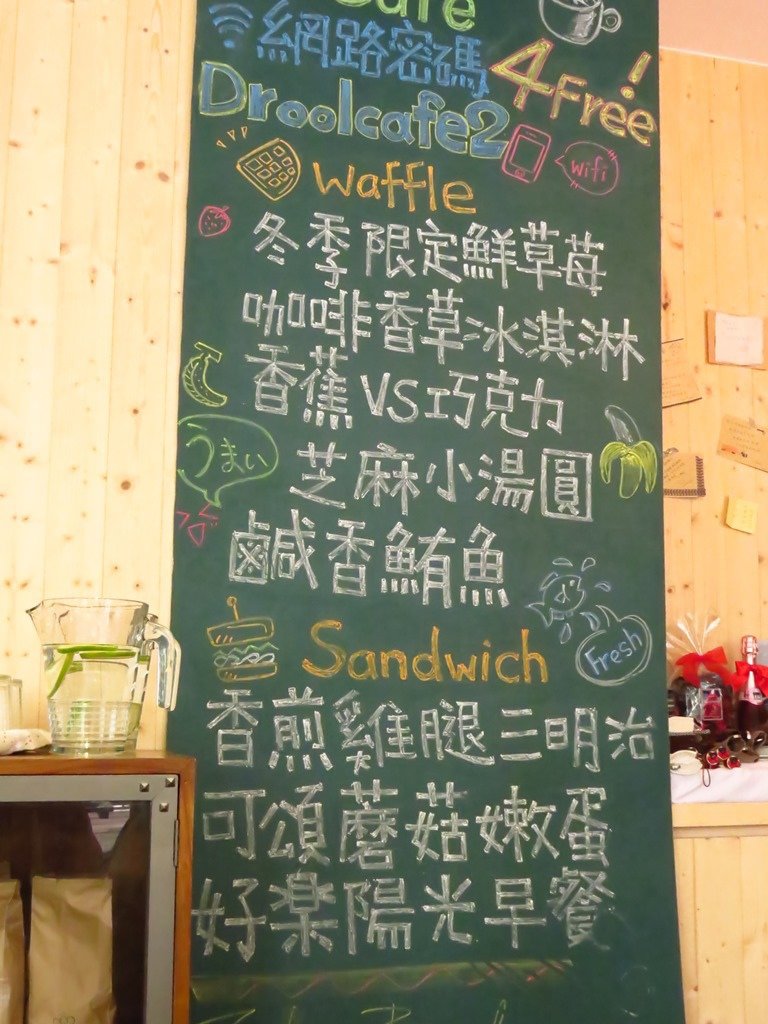 Cafe
網路密碼 4Free!
Droolcafe2
wifi
Waffle
冬季限定鮮草莓
咖啡香草冰淇淋
香蕉VS巧克力
うまい
芝麻小湯圓
鹹香鮪魚
Sandwich
Fresh
香煎雞腿三明治
可頌蘑菇嫩蛋
好楽陽光早餐